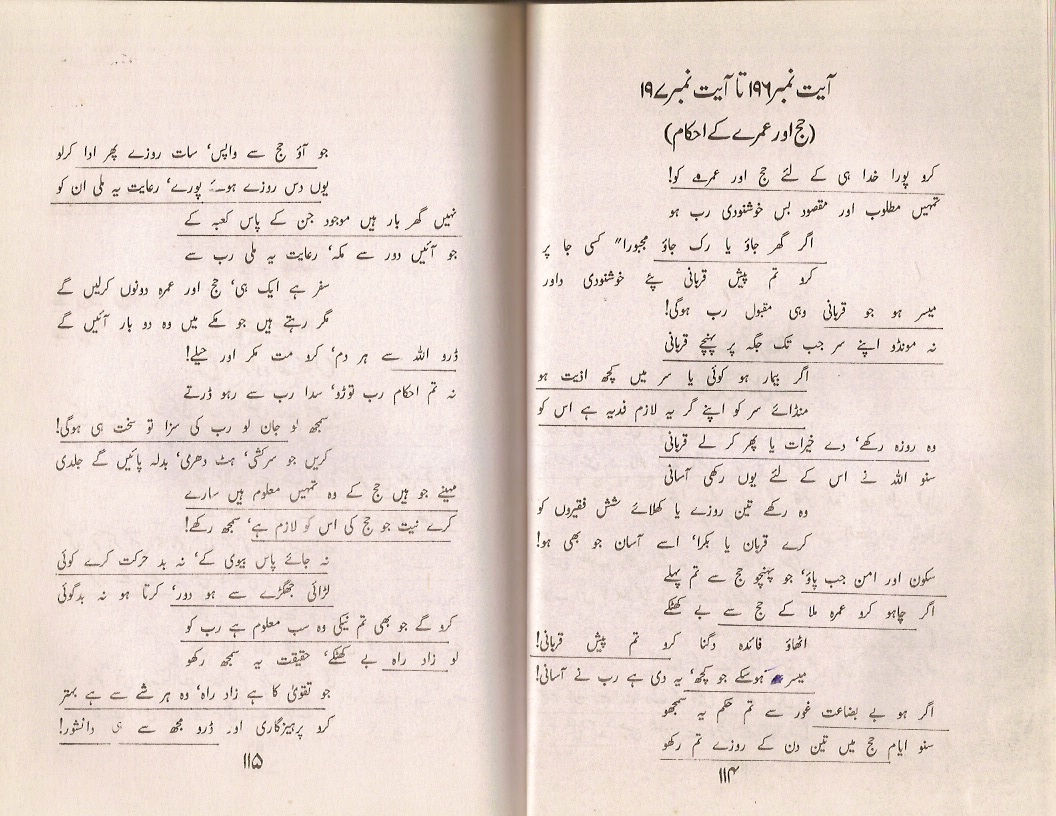 آیت نمبر ۱۹۶ تا آیت نمبر ۱۹۷
(حج اور عمرے کے احکام)
کرو پورا خدا ہی کے لئے حج اور عمرہ کو!
تمہیں مطلوب اور مقصود بس خوشنودی رب ہو
اگر گھر جاؤ یا رک جاؤ مجبورا" کسی جا پر
کرو تم پیش قربانی پئے خوشنودی داور
میسر ہو جو قربانی وہی مقبول رب ہوگی!
نہ مونڈو اپنے سر جب تک جگہ پر پہنچے قربانی
اگر بیمار ہو کوئی یا سر میں کچھ اذیت ہو
منڈائے سر کو اپنے گر یہ لازم فدیہ ہے اس کو
وہ روزہ رکھے، دے خیرات یا پھر کر لے قربانی
سنو اللہ نے اس کے لئے یوں رکھی آسانی
وہ رکھے تین روزے یا کھلائے شش فقیروں کو
کرے قربان یا بکرا، اسے آسان جو بھی ہو!
سکون اور امن جب پاؤ، جو پہنچو حج سے تم پہلے
اگر چاہو کرو عمرہ ملا کے حج سے بے کھٹکے
اٹھاؤ فائدہ دگنا کرو تم پیش قربانی!
میسر ہوسکے جو کچھ، یہ دی ہے رب نے آسانی!
اگر ہو بے بضاعت غور سے تم حکم یہ سمجھو
سنو ایام حج میں تین دن کے روزے تم رکھو
۱۱۴
جو آؤ حج سے واپس، سات روزے پھر ادا کرلو
یوں دس روزے ہوئے پورے، رعایت یہ ملی ان کو
نہیں گھر بار ہیں موجود جن کے پاس کعبہ کے
جو آئیں دور سے مکہ، رعایت یہ ملی رب سے
سفر ہے ایک ہی، حج اور عمرہ دونوں کرلیں گے
مگر رہتے ہیں جو مکے میں وہ دو بار آئیں گے
ڈرو اللہ سے ہر دم، کرو مت مکر اور حیلے!
نہ تم احکام رب توڑو، سدا رب سے رہو ڈرتے
سمجھ لو جان لو رب کی سزا تو سخت ہی ہوگی!
کریں جو سرکشی، ہٹ دھرمی، بدلہ پائیں گے جلدی
مہینے جو ہیں حج کے وہ تمہیں معلوم ہیں سارے
کرے نیت جو حج کی اس کو لازم ہے، سمجھ رکھے!
نہ جائے پاس بیوی کے، نہ بد حرکت کرے کوئی
لڑائی جھگڑے سے ہو دور، کرتا ہو نہ بدگوئی
کرو گے جو بھی تم نیکی وہ سب معلوم ہے رب کو
لو زاد راہ بے کھٹکے، حقیقت یہ سمجھ رکھو
جو تقویٰ کا ہے زاد راہ، وہ ہر شے سے ہے بہتر
کرو پرہیزگاری اور ڈرو مجھ سے ہی دانشور!
۱۱۵